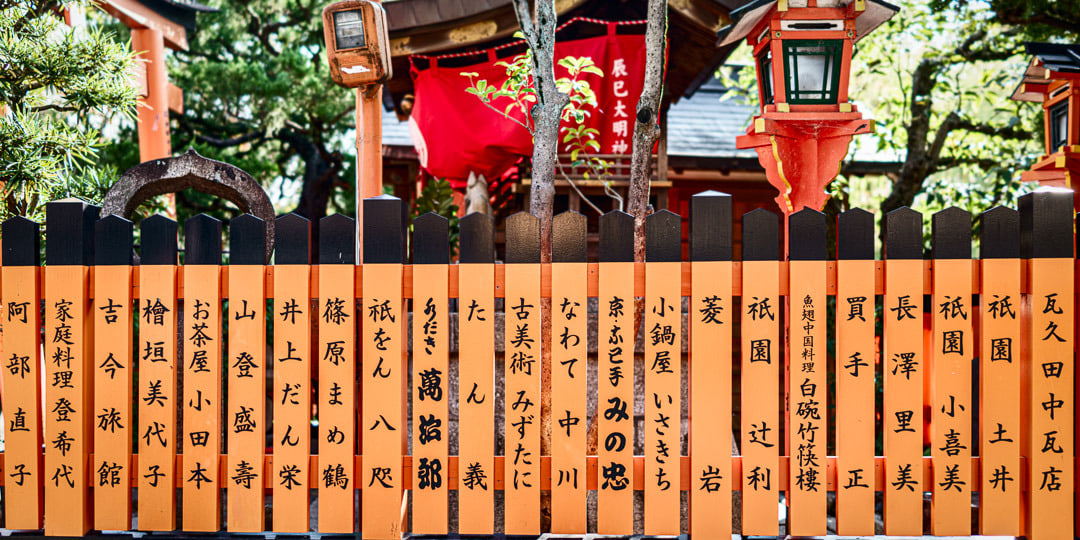 辰巳大明神
瓦久 田中瓦店
祇園 土井
祇園 小喜美
長澤里美
買手 正
魚翅中国料理 白碗竹筷樓
祇園 辻利
菱岩
小鍋屋 いさきち
みの忠
なわて 中川
古美術 みずたに
たん義
萬治郎
祇をん 八咫
篠原まめ鶴
井上だん栄
山登盛壽
お茶屋 小田本
檜垣美代子
吉今旅館
家庭料理 登希代
阿部直子